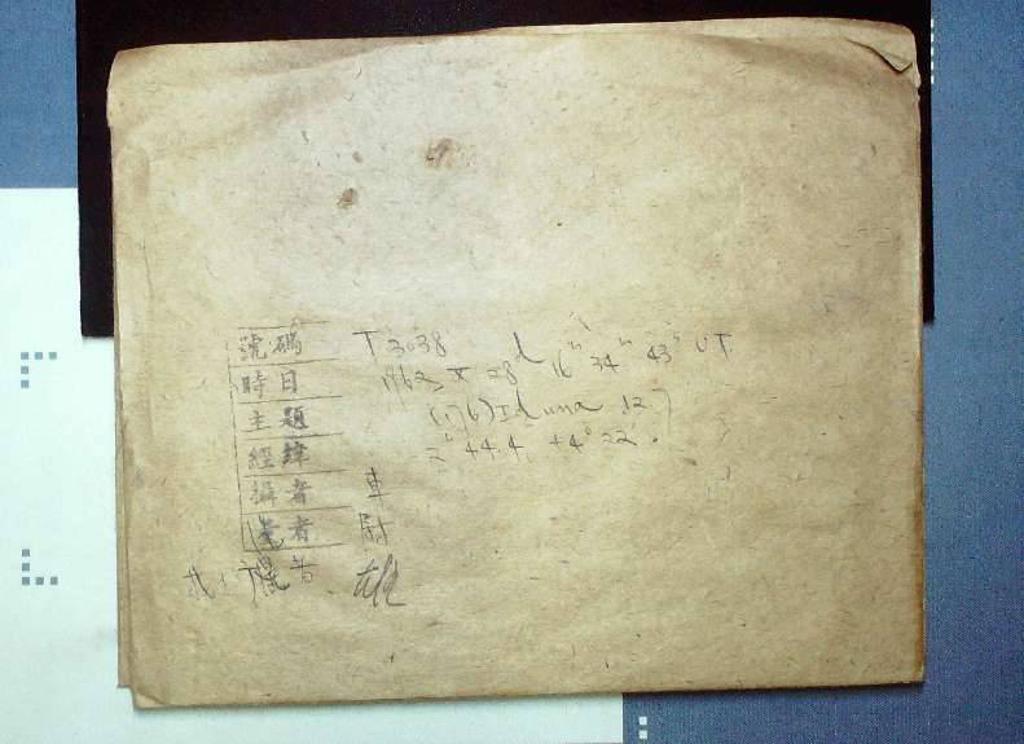 號碼 T 3038
時日 1962, X 28d 16h 34m 43s UT.
主題 (176) Iduna 12
經緯 2h 44.4 +4° 22'.
攝者 車
者 尉